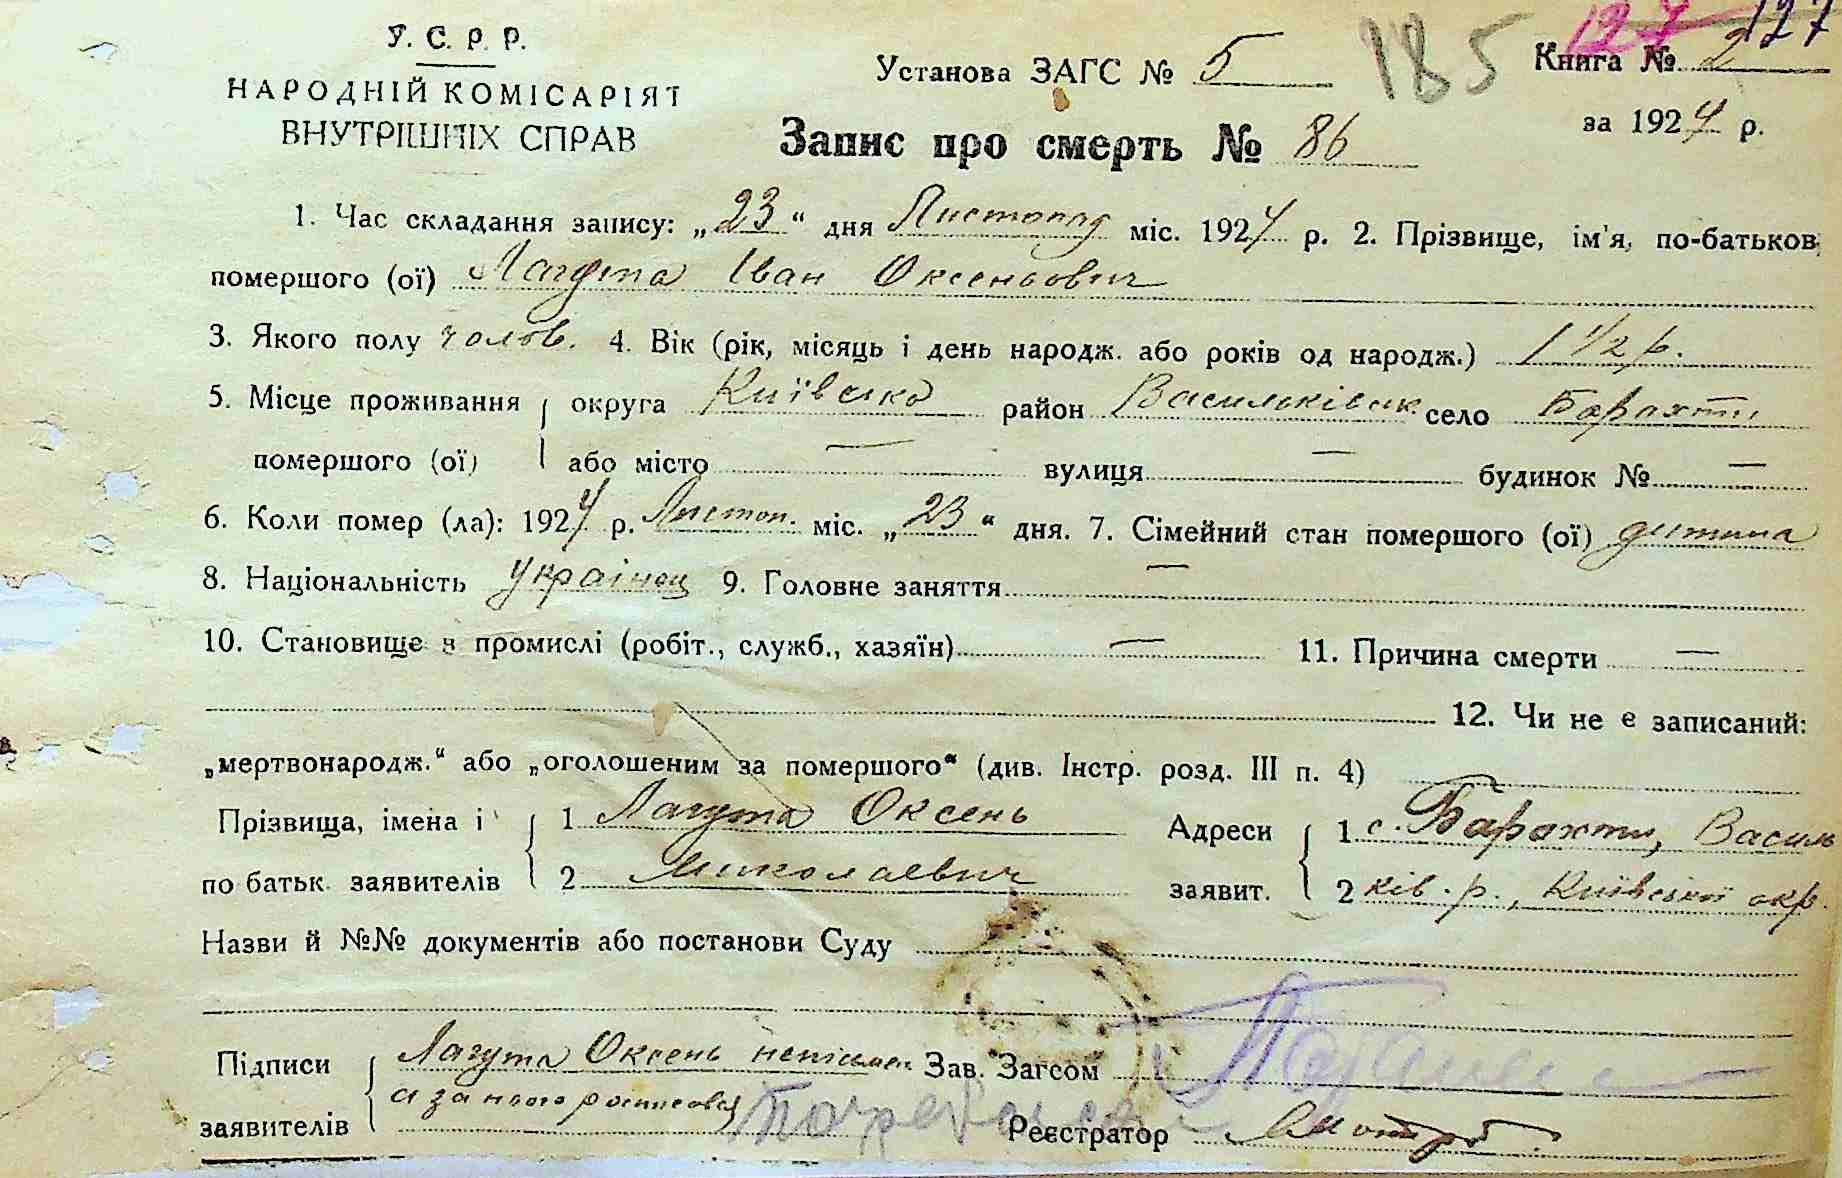 У. С. Р. Р.
НАРОДНІЙ КОМІСАРІЯТ
ВНУТРІШНІХ СПРАВ
Установа ЗАГС № 5
185
127
127
Книга № 2
за 1924 р.
Запис про смерть № 86
1. Час складання запису: „23“ дня Листопад міс. 1924 р. 2. Прізвище, ім'я, по-батьков
помершого (ої) Лагута Іван Оксеньович
3. Якого полу чолов. 4. Вік (рік, місяць і день народж. або років од народж.) 1 1/2 р.
5. Місце проживання округа Київсько район Васильківськ село Барахти
помершого (ої) або місто — вулиця — будинок № —
6. Коли помер (ла): 1924 р. Листоп. міс. „23“ дня. 7. Сімейний стан помершого (ої) дитина
8. Національність українец 9. Головне заняття —
10. Становище в промислі (робіт., служб., хазяїн) — 11. Причина смерти —
12. Чи не є записаний:
„мертвонародж.“ або „оголошеним за помершого“ (див. Інстр. розд. III п. 4)
Прізвища, імена і 1 Лагута Оксень Адреси 1 с. Барахти, Василь
по батьк. заявителів 2 Миколаевич заявит. 2 ків. р., Київської окр.
Назви й №№ документів або постанови Суду
Підписи Лагута Оксень неписьмен Зав. Загсом
заявителів а за нього росписався Реєстратор